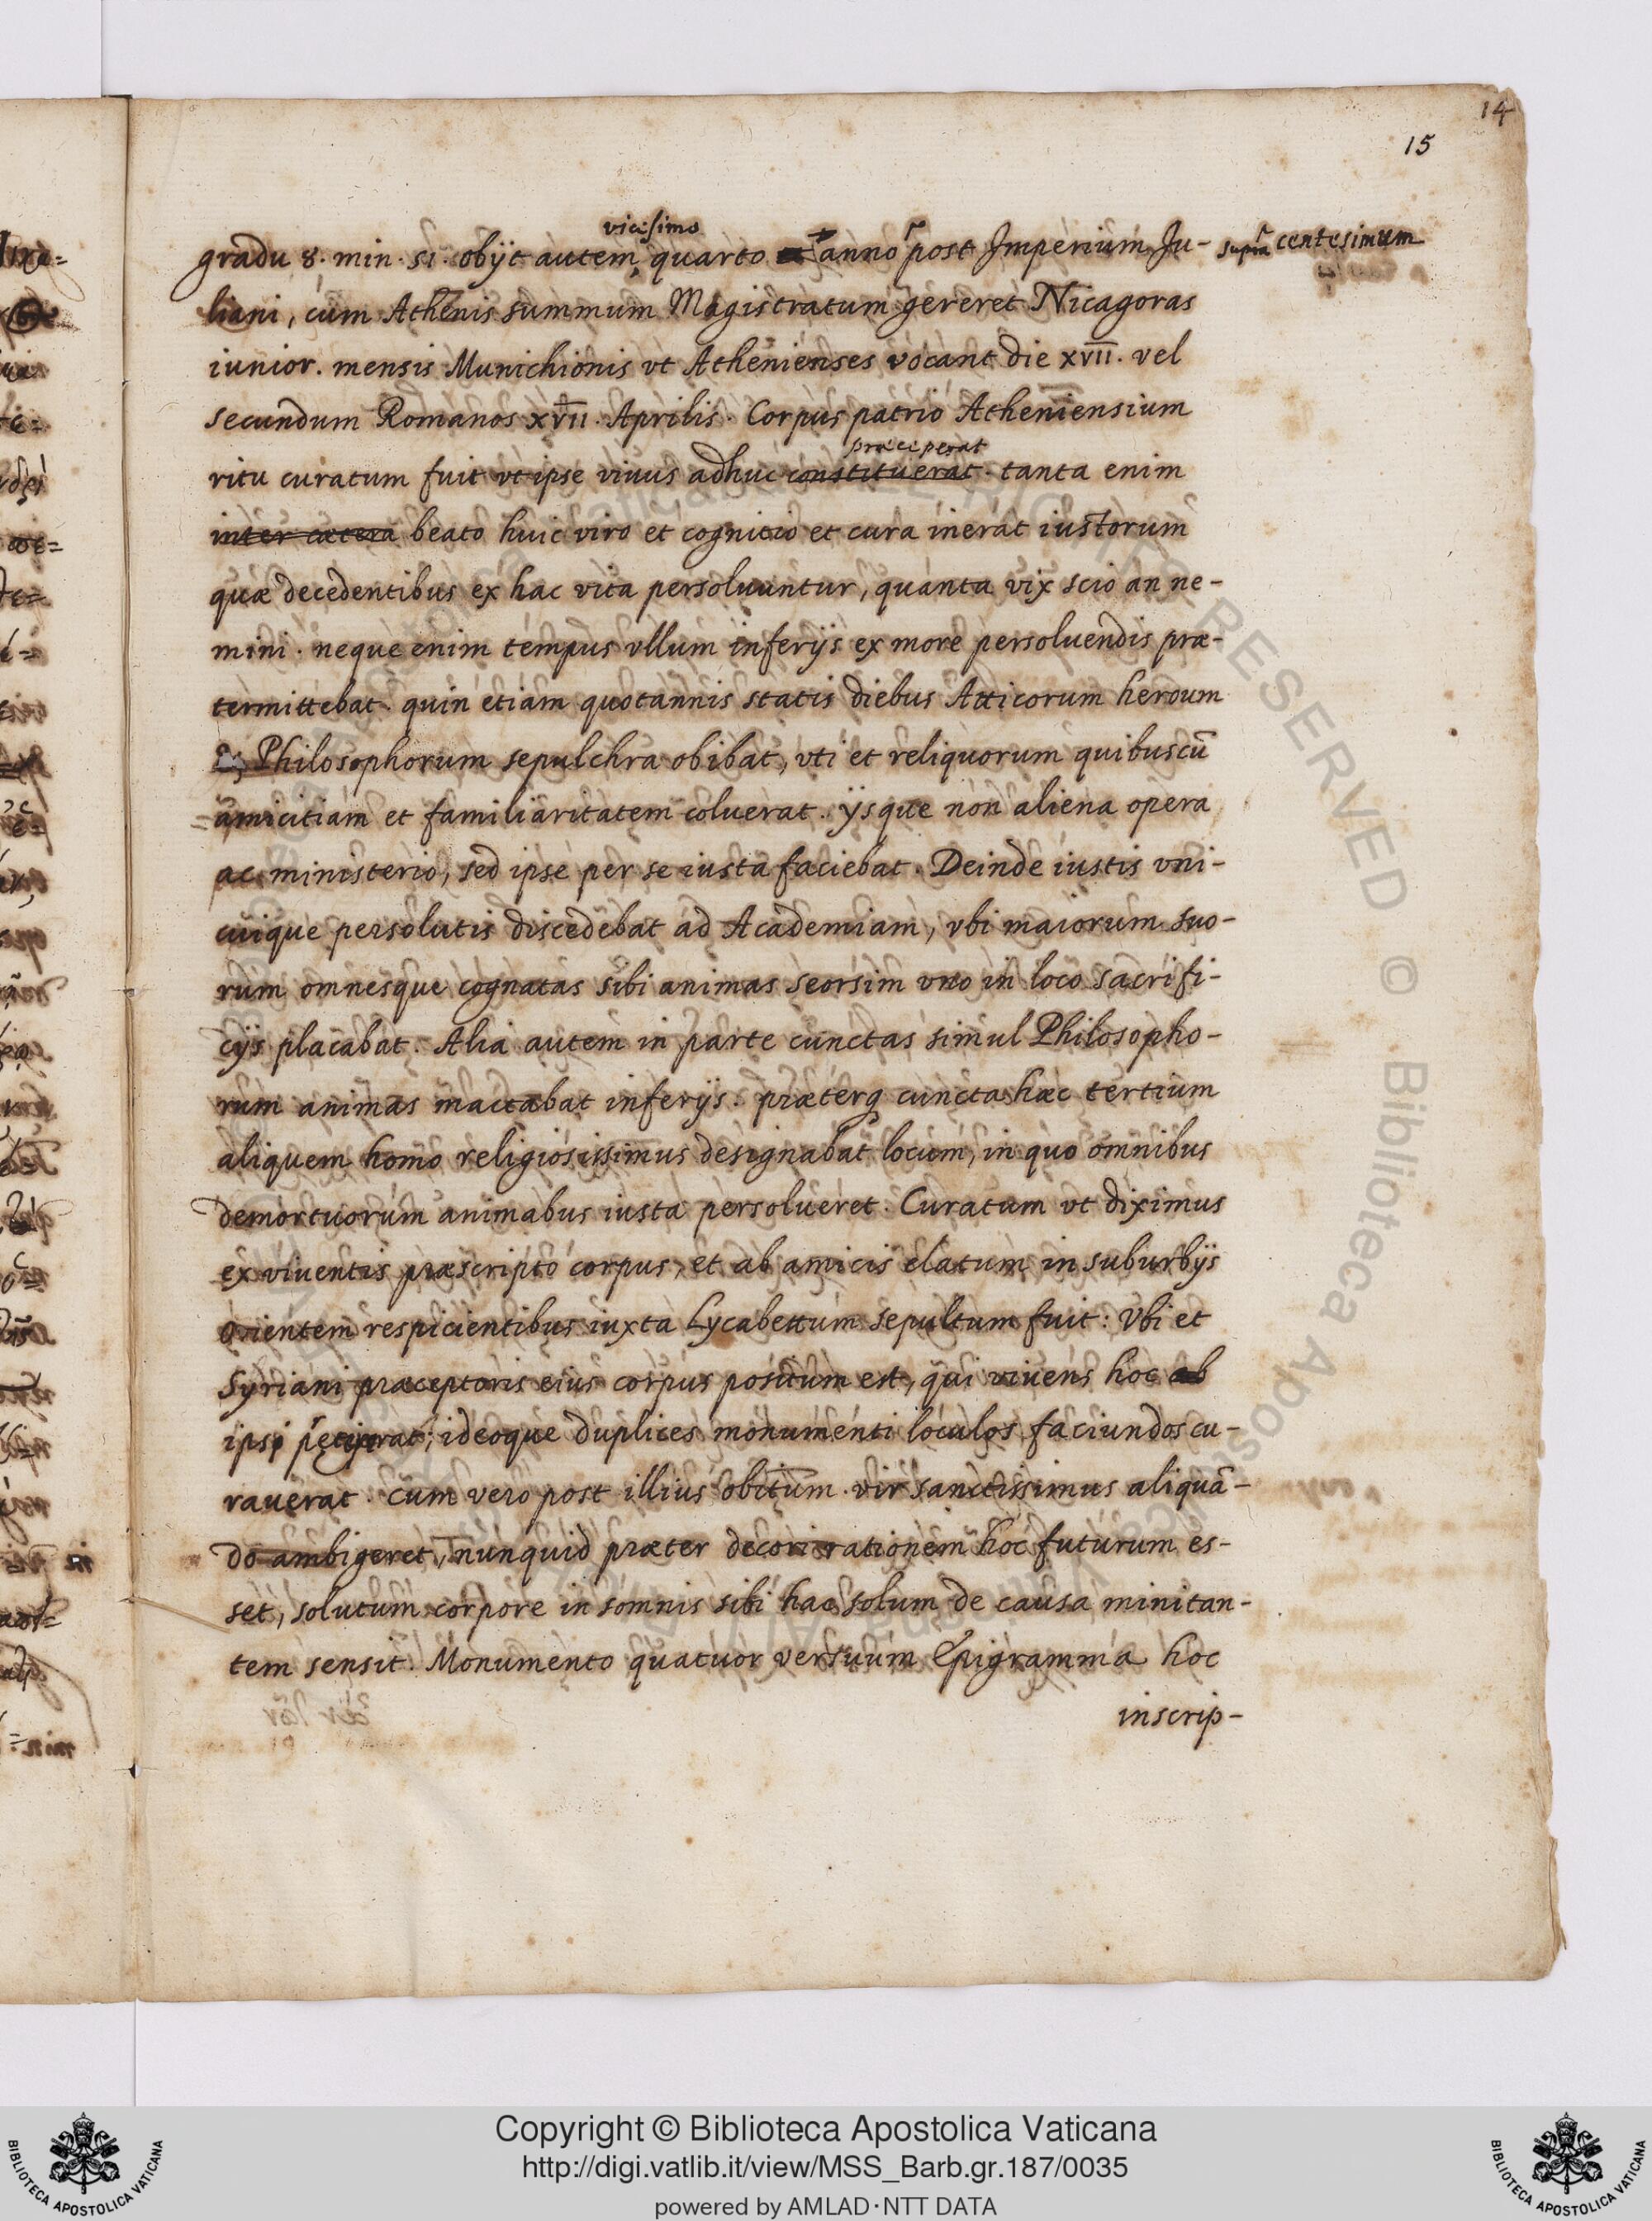 14
15
vicesimo
gradu 8. min. 51. obijt autem, quarto anno post Imperium Ju-
supra centesimum
liani, cum Athenis summum Magistratum gereret Nicagoras
iunior. mensis Munichionis vt Athenienses vocant die XVII. vel
secundum Romanos XVII. Aprilis. Corpus patrio Atheniensium
præceperat
ritu curatum fuit vt ipse viuus adhuc constituerat. tanta enim
inter cætera beato huic viro et cognitio et cura inerat iustorum
quæ decedentibus ex hac vita persoluuntur, quanta vix scio an ne-
mini. neque enim tempus vllum inferijs ex more persoluendis præ-
termittebat. quin etiam quotannis statis diebus Atticorum heroum
Philosophorum sepulchra obibat, vti et reliquorum quibuscū
amicitiam et familiaritatem coluerat. ijsque non aliena opera
ac ministerio, sed ipse per se iusta faciebat. Deinde iustis vni-
cuique persolutis discedebat ad Academiam, vbi maiorum suo-
rum omnesque cognatas sibi animas seorsim vno in loco sacrifi-
cijs placabat. Alia autem in parte cunctas simul Philosopho-
rum animas mactabat inferijs. præterq cuncta hæc tertium
aliquem homo religiosissimus designabat locum, in quo omnibus
demortuorum animabus iusta persolueret. Curatum vt diximus
ex viuentis præscripto corpus, et ab amicis elatum in suburbijs
Orientem respicientibus iuxta Lycabettum sepultum fuit: Vbi et
Syriani præceptoris eius corpus positum est, qui viuens hoc ab
ipso petierat; ideoque duplices monumenti loculos faciundos cu-
rauerat. cum vero post illius obitum vir sanctissimus aliquā-
do ambigeret, nunquid præter decori rationem hoc futurum es-
set, solutum corpore in somnis sibi hac solum de causa minitan-
tem sensit. Monumento quatuor versuum Epigramma hoc
inscrip-
Copyright © Biblioteca Apostolica Vaticana
http://digi.vatlib.it/view/MSS_Barb.gr.187/0035
powered by AMLAD·NTT DATA
BIBLIOTECA APOSTOLICA VATICANA
BIBLIOTECA APOSTOLICA VATICANA